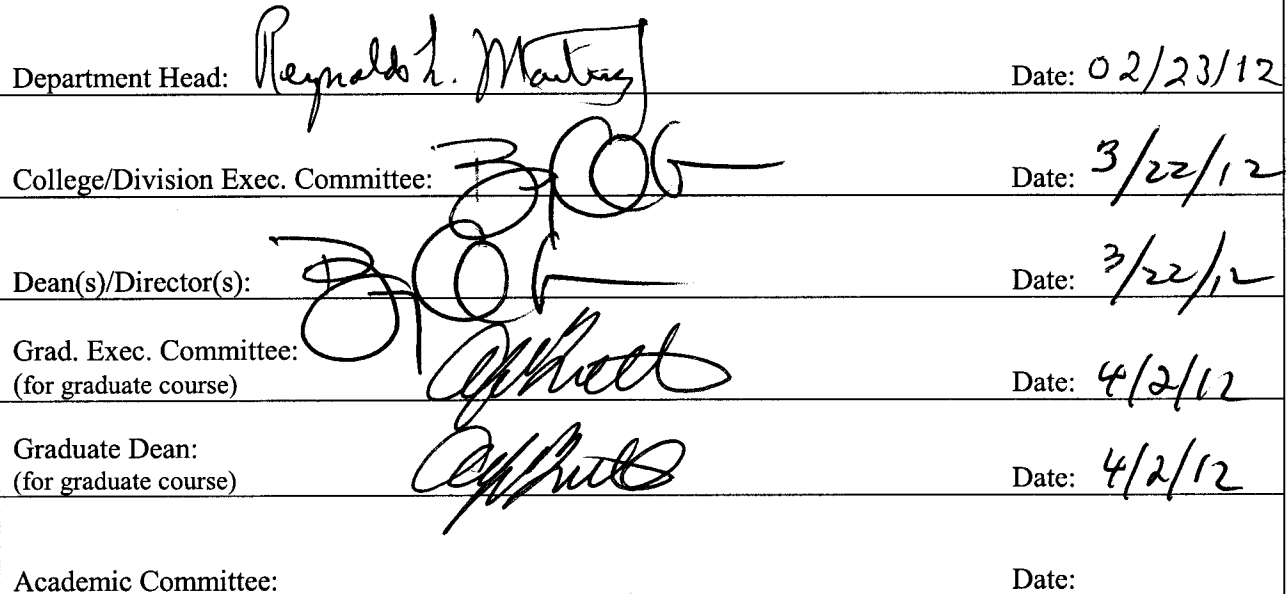 Department Head: Reynaldo L. Martinez Date: 02/23/12
College/Division Exec. Committee: Date: 3/22/12
Dean(s)/Director(s): Date: 3/22/12
Grad. Exec. Committee:
(for graduate course) Date: 4/2/12
Graduate Dean:
(for graduate course) Date: 4/2/12
Academic Committee: Date: